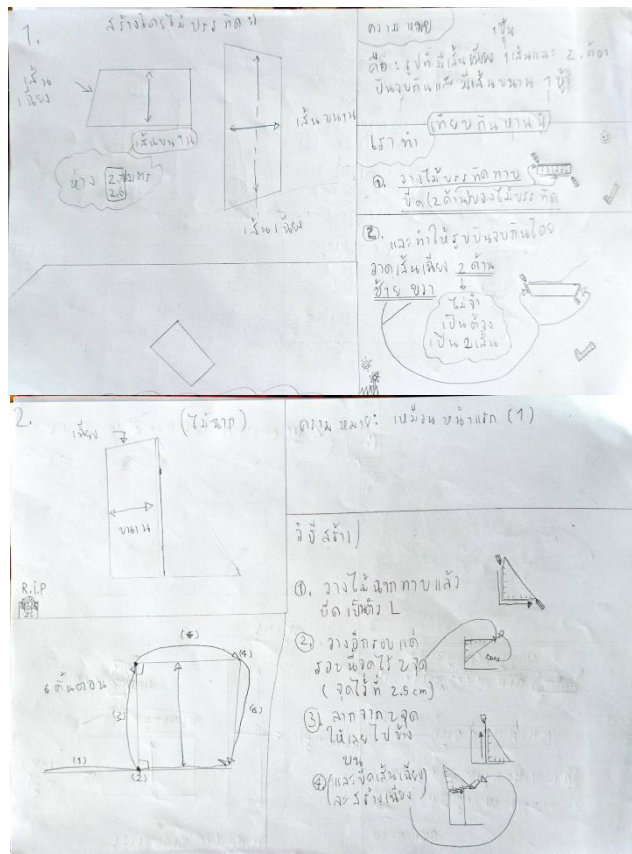 1.
สร้างโดยไม้บรรทัด
เส้น
เฉียง
เส้นขนาน
ห่าง
2.6
เส้นขนาน
เส้นเฉียง
ความหมาย
คือ: รูปที่มีเส้นเฉียง 1 เส้นและ 2. ต้อง
บีนจบกันและ มีเส้นขนาน 1 คู่
เราทำ
เทียบกันหาน
1. วางไม้บรรทัดทาบ
ขีด (2 ด้าน) ของไม้บรรทัด
2. และทำให้รูปบีนจบกันโดย
วาดเส้นเฉียง 2 ด้าน
ซ้าย ขวา
ไม่จำ
เป็นต้อง
เป็น 2 เส้น
2.
(ไม้ฉาก)
เฉียง
ขนาน
R.I.P
ความหมาย: เหมือนหน้าแรก (1)
วิธีสร้าง
1. วางไม้ฉากทาบแล้ว
ขีดเป็นตัว L
2. วางอีกรอบแต่
รอบนี้จุดไว้ 2 จุด
(จุดไว้ที่ 2.5 cm)
3. ลากจาก 2 จุด
ให้เลยไปข้าง
บน
4. (และขีดเส้นเฉียง)
และสร้างเฉียง
6 ขั้นตอน
(1)
(2)
(3)
(4)